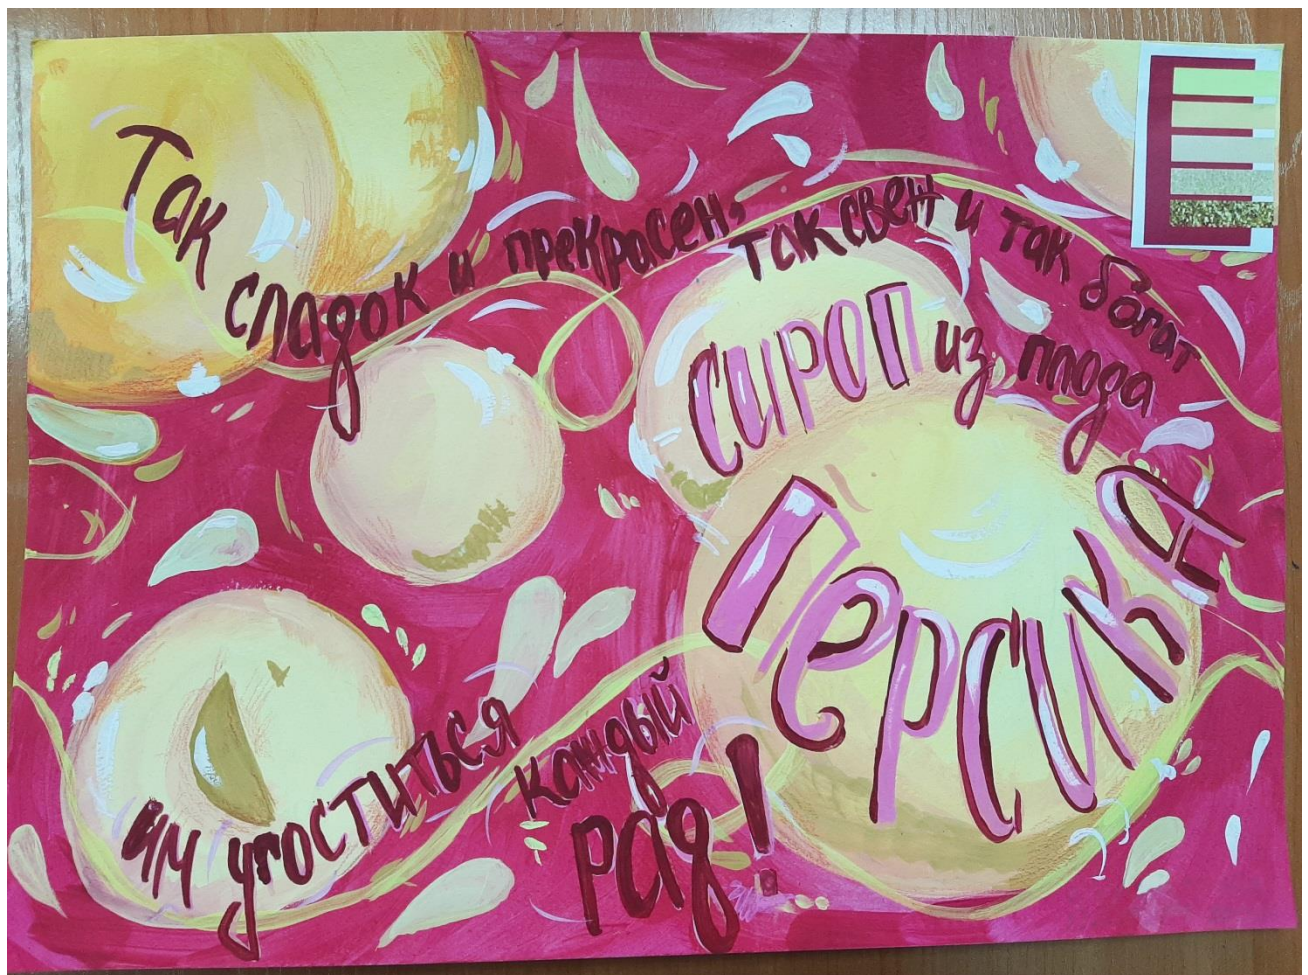 Так сладок и прекрасен,
так свеж и так богат
сироп из плода
Персика
им угоститься
каждый
рад!